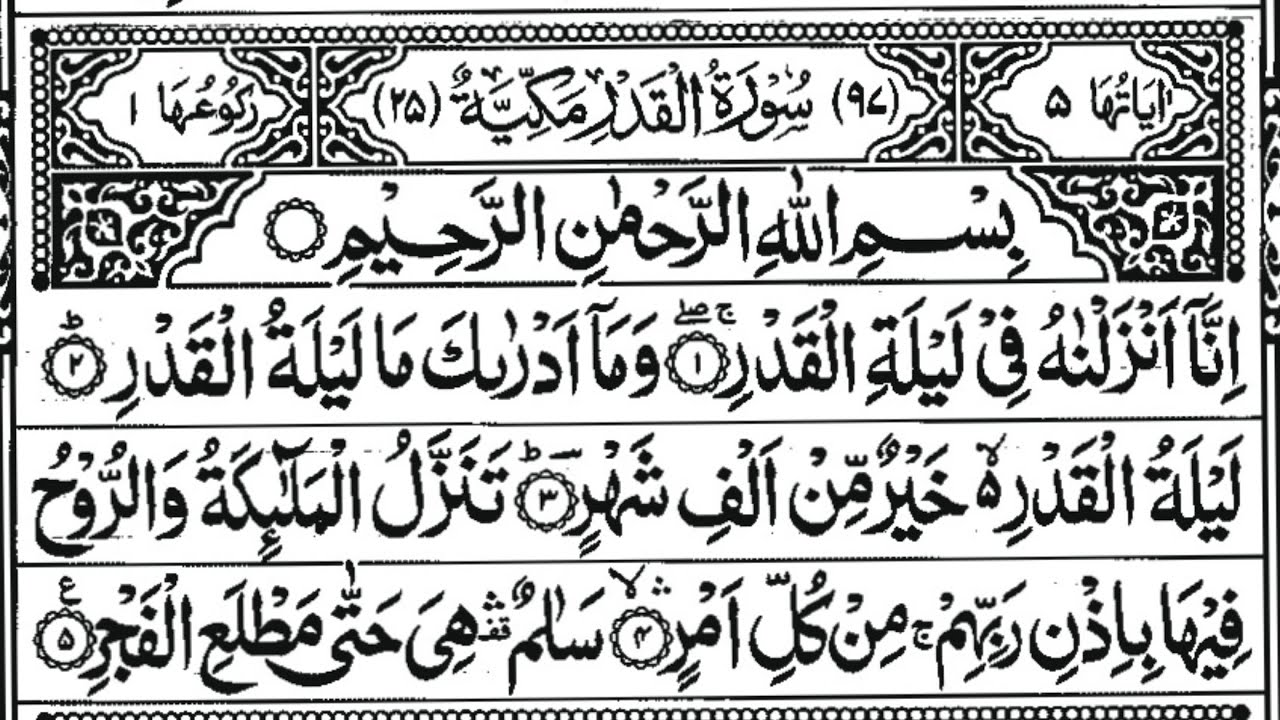 اٰيَاتُهَا ٥ (٩٧) سُوْرَةُ الْقَدْرِ مَكِّيَّةٌ (٢٥) رُكُوْعُهَا ١
بِسْمِ اللّٰهِ الرَّحْمٰنِ الرَّحِيْمِ
اِنَّاۤ اَنْزَلْنٰهُ فِيْ لَيْلَةِ الْقَدْرِ ۚۖ ١ وَمَاۤ اَدْرٰىكَ مَا لَيْلَةُ الْقَدْرِ ؕ ٢
لَيْلَةُ الْقَدْرِ ۙ۬ خَيْرٌ مِّنْ اَلْفِ شَهْرٍ ؕ ٣ تَنَزَّلُ الْمَلٰٓئِكَةُ وَالرُّوْحُ
فِيْهَا بِاِذْنِ رَبِّهِمْ ج مِنْ كُلِّ اَمْرٍ ۙ ٤ سَلٰمٌ قف هِيَ حَتّٰى مَطْلَعِ الْفَجْرِ ٥ ع